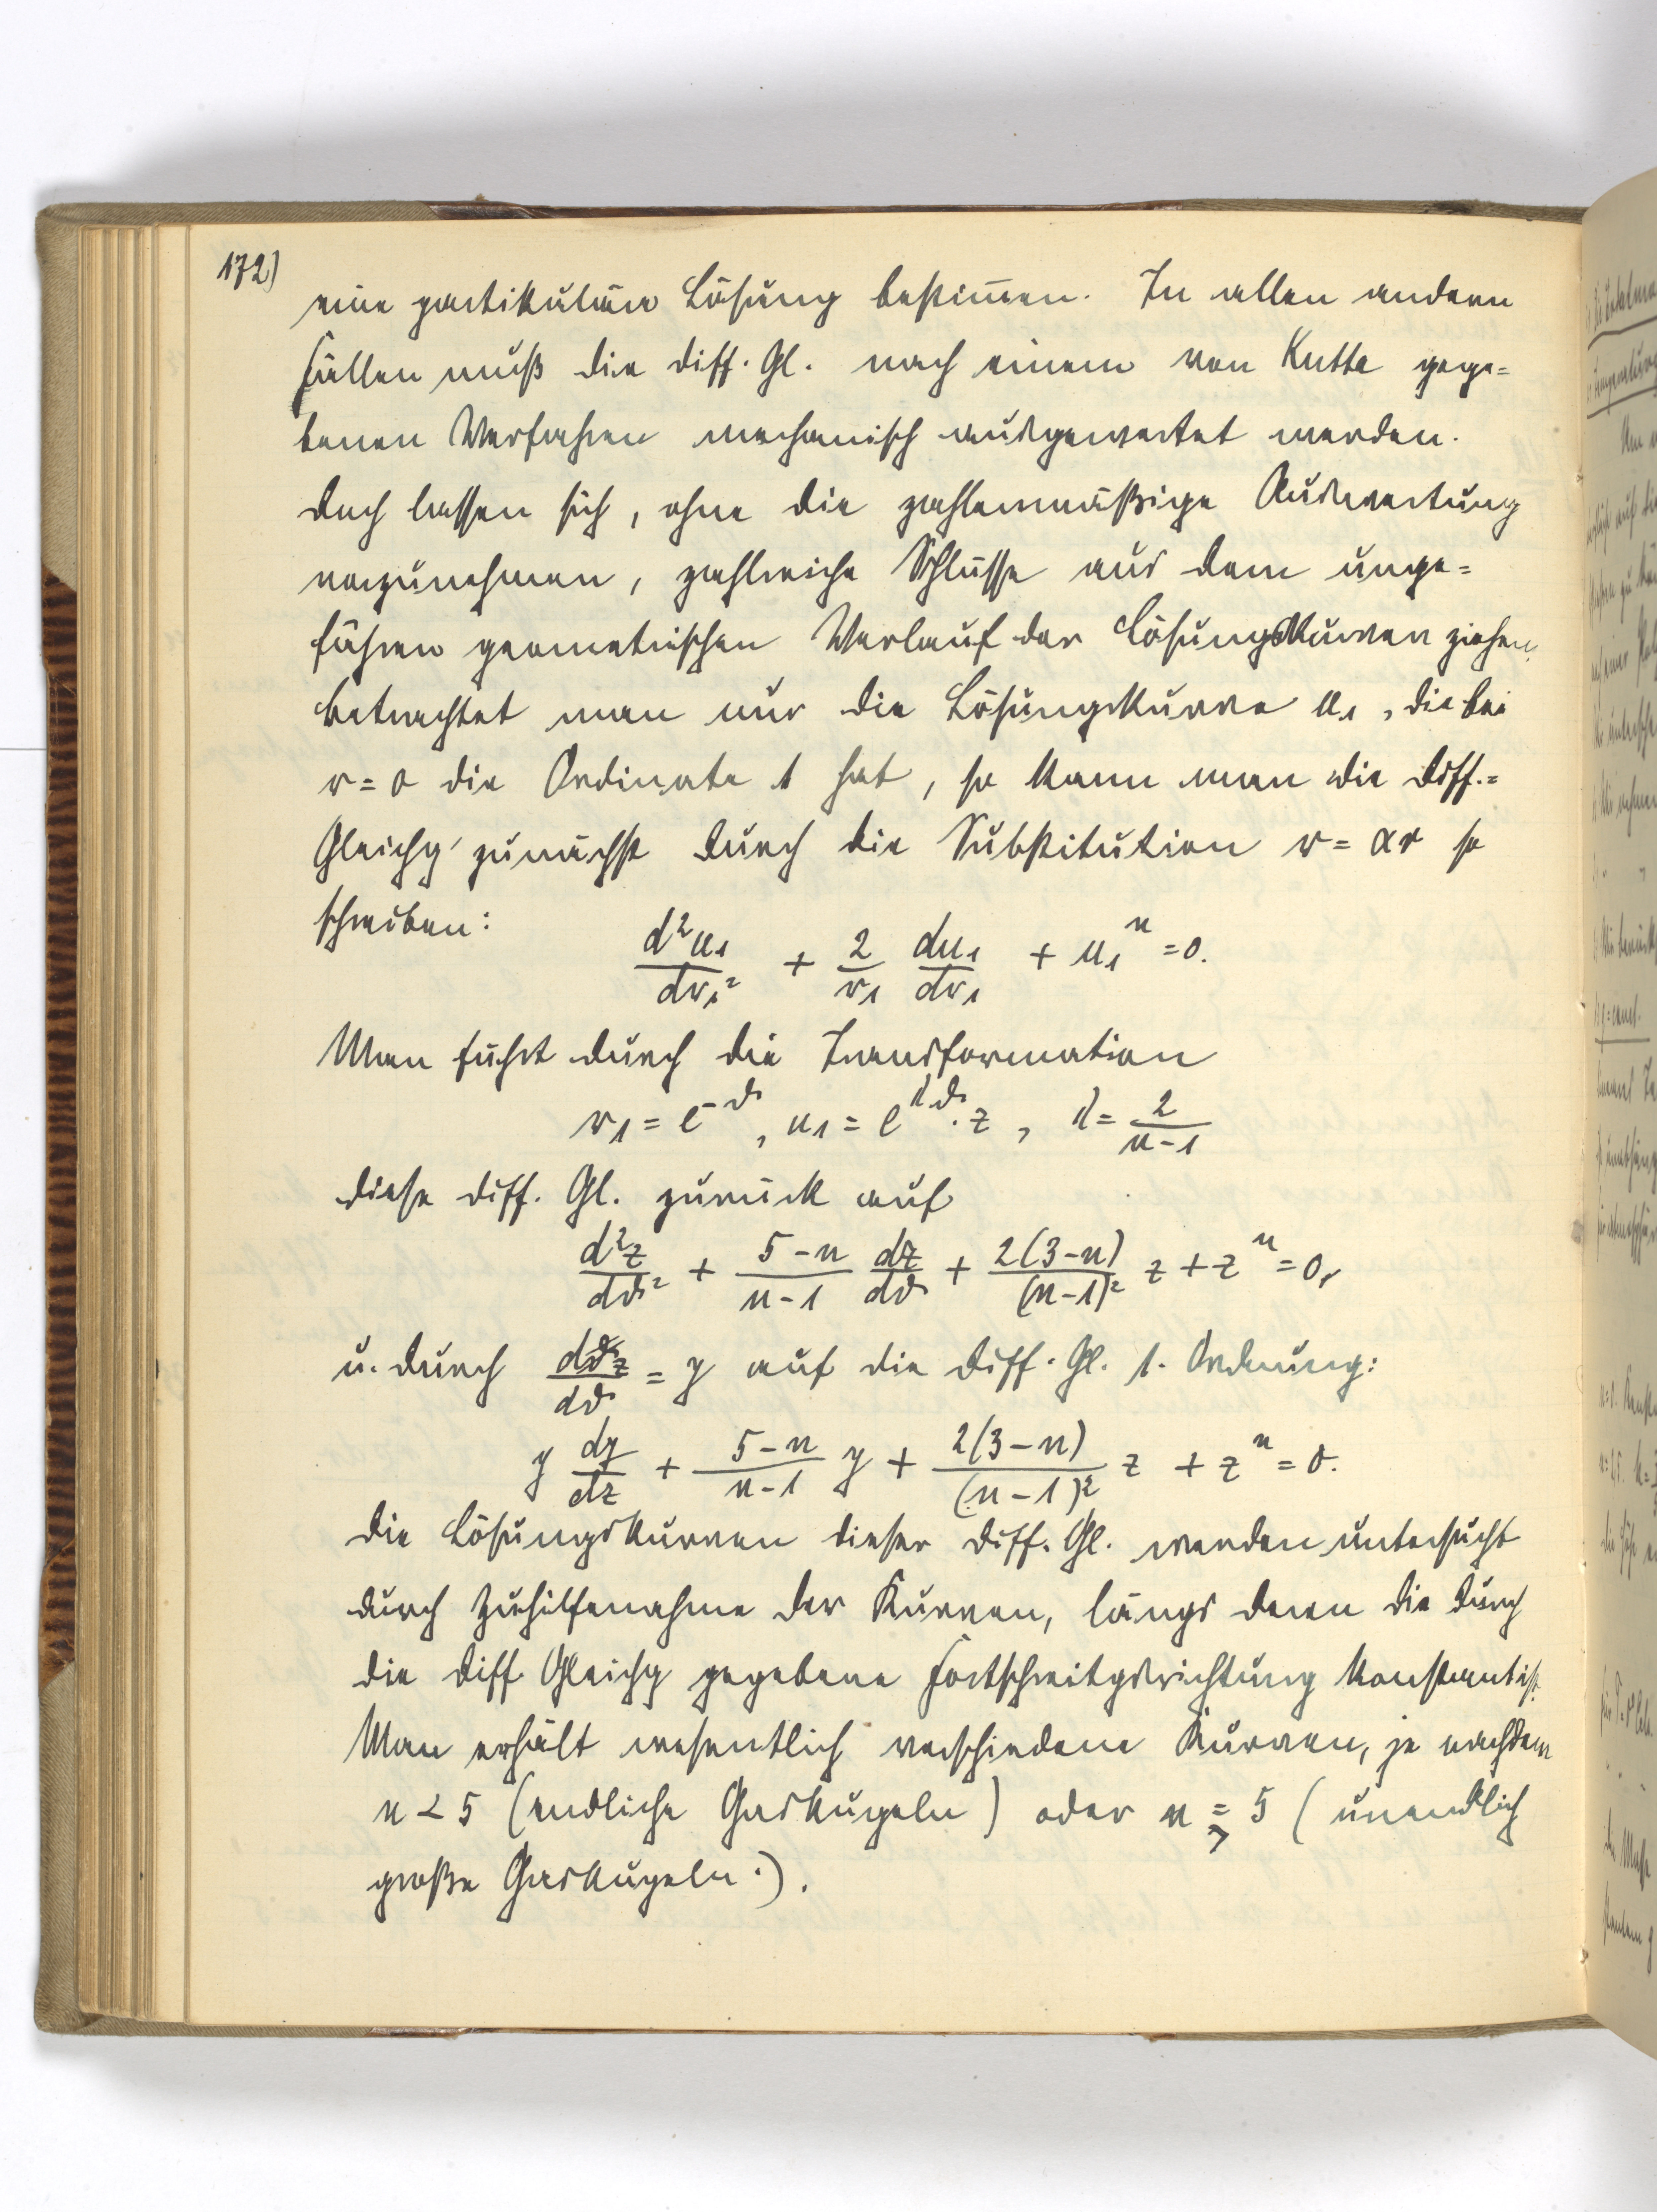 172)
eine partikuläre Lösung bestimmen. In allen andern
Fällen muß die diff. Gl. nach einem von Kutta gege=
benen Verfahren mechanisch ausgewertet werden.
Doch lassen sich, ohne die zahlenmäßige Auswertung
vorzunehmen, zahlreiche Schlüsse aus dem unge=
fähren geometrischen Verlauf der Lösungskurven ziehen.
Betrachtet man nur die Lösungskurve u₁, die bei
r = 0 die Ordinate 1 hat, so kann man die Diff.=
Gleichg zunächst durch die Substitution r = αr so
schreiben:
d²u₁/dr₁² + 2/r₁ du₁/dr₁ + u₁ⁿ = 0.
Man führt durch die Transformation
r₁ = e^(-ϑ), u₁ = e^(λϑ) · z, λ = 2/(n-1)
diese diff. Gl. zurück auf
d²z/dϑ² + (5-n)/(n-1) dz/dϑ + 2(3-n)/(n-1)² z + zⁿ = 0,
u. durch dz/dϑ = y auf die Diff. Gl. 1. Ordnung:
y dy/dz + (5-n)/(n-1) y + 2(3-n)/(n-1)² z + zⁿ = 0.
Die Lösungskurven dieser Diff. Gl. werden untersucht
durch Zuhilfenahme der Kurven, längs deren die durch
die Diff. Gleichg gegebene Fortschreitgsrichtung konstant ist.
Man erhält wesentlich verschiedene Kurven, je nachdem
n < 5 (endliche Gaskugeln) oder n ⩾ 5 (unendlich
große Gaskugeln.).